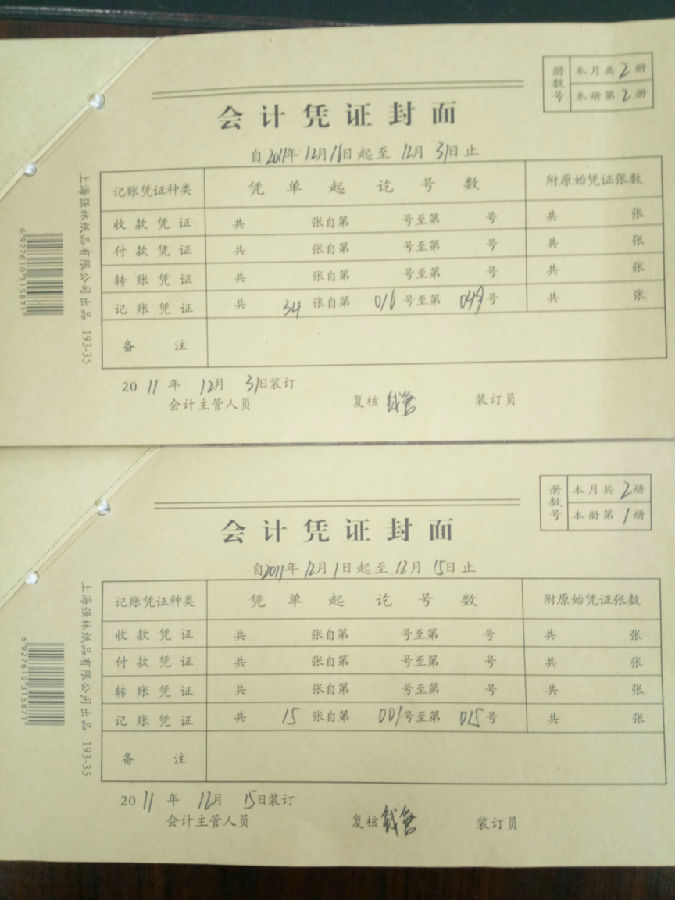 册数号 本月共 2 册
本册第 2 册
会计凭证封面
自2011年12月16日起至12月31日止
记账凭证种类 凭单起讫号数 附原始凭证张数
收款凭证 共 张自第 号至第 号 共 张
付款凭证 共 张自第 号至第 号 共 张
转账凭证 共 张自第 号至第 号 共 张
记账凭证 共 34 张自第 016 号至第 049 号 共 张
备注
2011年 12月 31日装订
会计主管人员 复核 装订员
上海强林纸品有限公司出品 193-35
6927610315871
册数号 本月共 2 册
本册第 1 册
会计凭证封面
自2011年12月1日起至12月15日止
记账凭证种类 凭单起讫号数 附原始凭证张数
收款凭证 共 张自第 号至第 号 共 张
付款凭证 共 张自第 号至第 号 共 张
转账凭证 共 张自第 号至第 号 共 张
记账凭证 共 15 张自第 001 号至第 015 号 共 张
备注
2011年 12月 15日装订
会计主管人员 复核 装订员
上海强林纸品有限公司出品 193-35
6927610315871